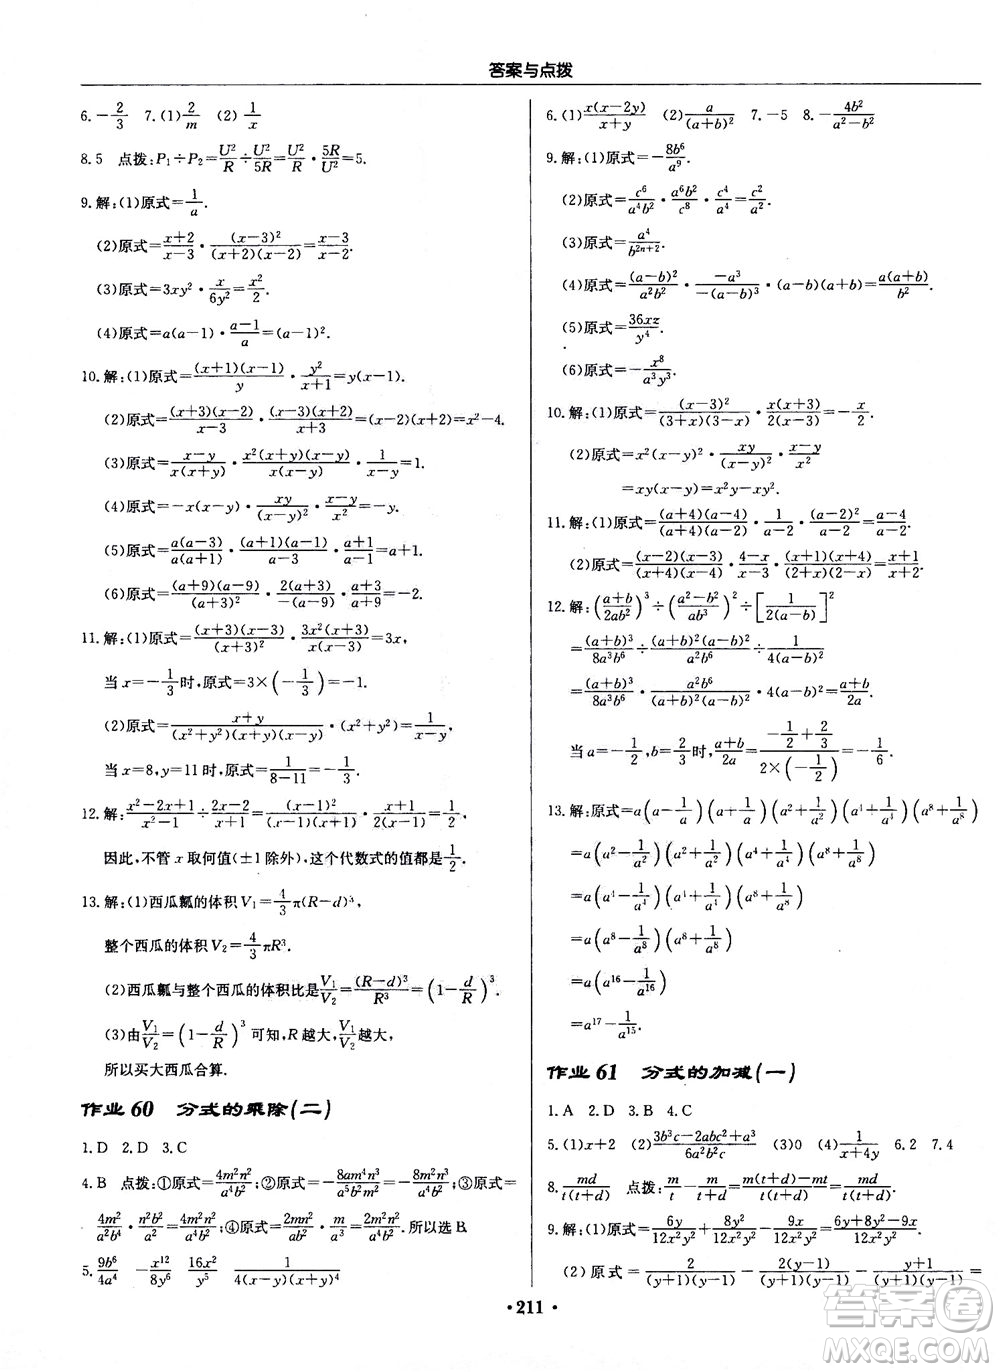 答案与点拨
6. -2/3 7. (1) 2/m (2) 1/x
8. 5 点拨:P₁÷P₂=U²/R÷U²/5R=U²/R·5R/U²=5.
9. 解:(1)原式=1/a.
(2)原式=(x+2)/(x-3)·(x-3)²/((x+2)(x-2))=(x-3)/(x-2).
(3)原式=3xy²·x/6y²=x²/2.
(4)原式=a(a-1)·(a-1)/a=(a-1)².
10. 解:(1)原式=(x+1)(x-1)/y·y²/(x+1)=y(x-1).
(2)原式=(x+3)(x-2)/(x-3)·(x-3)(x+2)/(x+3)=(x-2)(x+2)=x²-4.
(3)原式=(x-y)/(x(x+y))·x²(x+y)(x-y)/(x(x-y))·1/(x-y)=1.
(4)原式=-x(x-y)·xy/(x-y)²·(x-y)/x²=-y.
(5)原式=a(a-3)/(a(a+1))·(a+1)(a-1)/(a-3)·(a+1)/(a-1)=a+1.
(6)原式=(a+9)(a-9)/(a+3)²·2(a+3)/(9-a)·(a+3)/(a+9)=-2.
11. 解:(1)原式=(x+3)(x-3)/(x+3)²·3x²(x+3)/(x(x-3))=3x,
当x=-1/3时,原式=3×(-1/3)=-1.
(2)原式=(x+y)/((x²+y²)(x+y)(x-y))·(x²+y²)=1/(x-y),
当x=8,y=11时,原式=1/(8-11)=-1/3.
12. 解:(x²-2x+1)/(x²-1)÷(2x-2)/(x+1)=(x-1)²/((x+1)(x-1))·(x+1)/(2(x-1))=1/2,
因此,不管x取何值(±1除外),这个代数式的值都是1/2.
13. 解:(1)西瓜瓤的体积V₁=4/3π(R-d)³,
整个西瓜的体积V₂=4/3πR³.
(2)西瓜瓤与整个西瓜的体积比是V₁/V₂=(R-d)³/R³=(1-d/R)³.
(3)由V₁/V₂=(1-d/R)³可知,R越大,V₁/V₂越大,
所以买大西瓜合算.
作业60 分式的乘除(二)
1. D 2. D 3. C
4. B 点拨:①原式=4m²n²/a⁴b²;②原式=-8am⁴n³/a⁵b²m²=-8m²n³/a⁴b²;③原式=
4m²/a²b⁴·n²b²/a²=4m²n²/a⁴b²;④原式=2mn²/a³b²·m/a=2m²n²/a⁴b².所以选B.
5. 9b⁶/4a⁴ -x¹²/8y⁶ 16x²/y⁵ 1/(4(x+y)(x-y))
6. (1) x(x-2y)/(x+y) (2) a/(a+b)² 7. -5 8. -4b²/(a²-b²)
9. 解:(1)原式=-8b⁶/a⁹.
(2)原式=c⁶/a⁴b²·a⁶b²/c⁸·c⁴/a⁴=c²/a².
(3)原式=a⁴/b²ⁿ⁺².
(4)原式=(a-b)²/a²b²·-a³/(-(a-b)³)·(a-b)(a+b)=a(a+b)/b².
(5)原式=36xz/y⁴.
(6)原式=-x⁸/a³y³.
10. 解:(1)原式=(x-3)²/((3+x)(3-x))·x(x+3)/(2(x-3))=-x/2.
(2)原式=x²(x-y)²·xy/(x-y)²·(x-y)/x²
=xy(x-y)=x²y-xy².
11. 解:(1)原式=(a+4)(a-4)/((a+4)(a-2))·1/(a-2)·(a-2)²/(a-2)=(a-4)/(a-2).
(2)原式=(x-2)(x-3)/((x+4)(x-4))·(4-x)/(x-3)·(x+1)(x+4)/((2+x)(2-x))=(x+1)/(x+2).
12. 解:((a+b)/2ab²)³÷((a²-b²)/ab³)²÷[1/(2(a-b))]²
=(a+b)³/8a³b⁶÷(a+b)²(a-b)²/a²b⁶÷1/(4(a-b)²)
=(a+b)³/8a³b⁶·a²b⁶/((a+b)²(a-b)²)·4(a-b)²=(a+b)/2a.
当a=-1/2,b=2/3时,(a+b)/2a=(-1/2+2/3)/(2×(-1/2))=-1/6.
13. 解:原式=a(a-1/a)(a+1/a)(a²+1/a²)(a⁴+1/a⁴)(a⁸+1/a⁸)
=a(a²-1/a²)(a²+1/a²)(a⁴+1/a⁴)(a⁸+1/a⁸)
=a(a⁴-1/a⁴)(a⁴+1/a⁴)(a⁸+1/a⁸)
=a(a⁸-1/a⁸)(a⁸+1/a⁸)
=a(a¹⁶-1/a¹⁶)
=a¹⁷-1/a¹⁵.
作业61 分式的加减(一)
1. A 2. D 3. B 4. C
5. (1)x+2 (2)(3b³c-2abc²+a³)/6a²b²c (3)0 (4)1/(x+4y) 6. 2 7. 4
8. md/(t(t+d)) 点拨:m/t-m/(t+d)=(m(t+d)-mt)/(t(t+d))=md/(t(t+d)).
9. 解:(1)原式=6y/12x²y²+8y²/12x²y²-9x/12x²y²=(6y+8y²-9x)/12x²y².
(2)原式=2/((y+1)(y-1))-2(y-1)/((y+1)(y-1))-(y+1)/((y+1)(y-1))=
·211·
答案圈
MXQE.COM